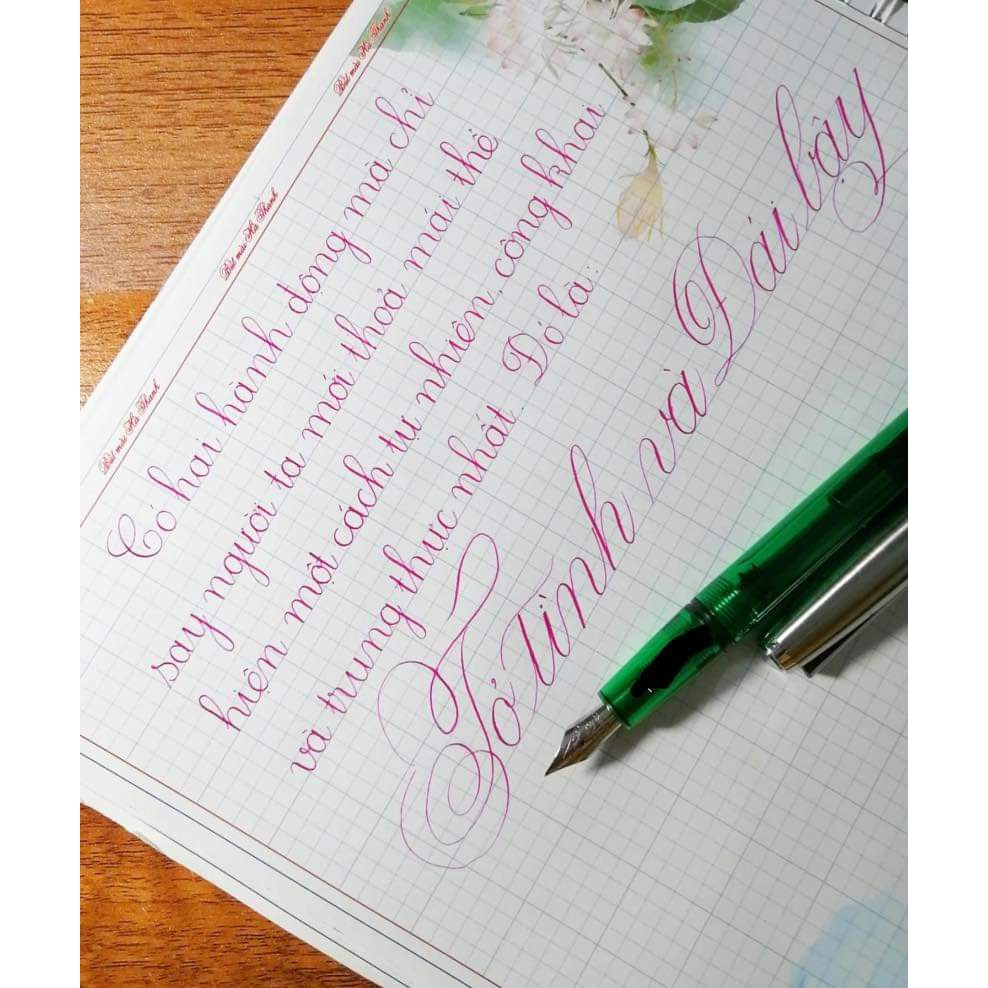 Bút mài Hà Thanh
Bút mài Hà Thanh
Bút mài Hà Thanh
Có hai hành động mà chỉ
say người ta mới thoả mái thể
hiện một cách tự nhiên, công khai
và trung thực nhất. Đó là:
Tỏ Tình và Đái bậy